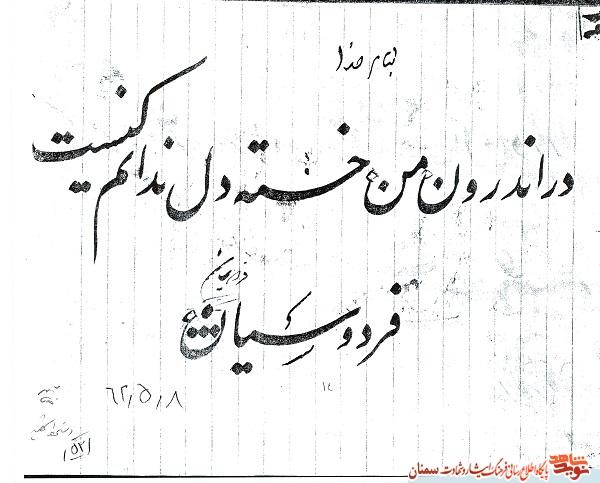 بنام خدا
در اندرون من خسته دل ندانم کیست
فردوسیان
فردوسیان
۶۲٫۵٫۸
نوید شاهد
پایگاه اطلاع رسانی فرهنگ ایثار و شهادت سمنان